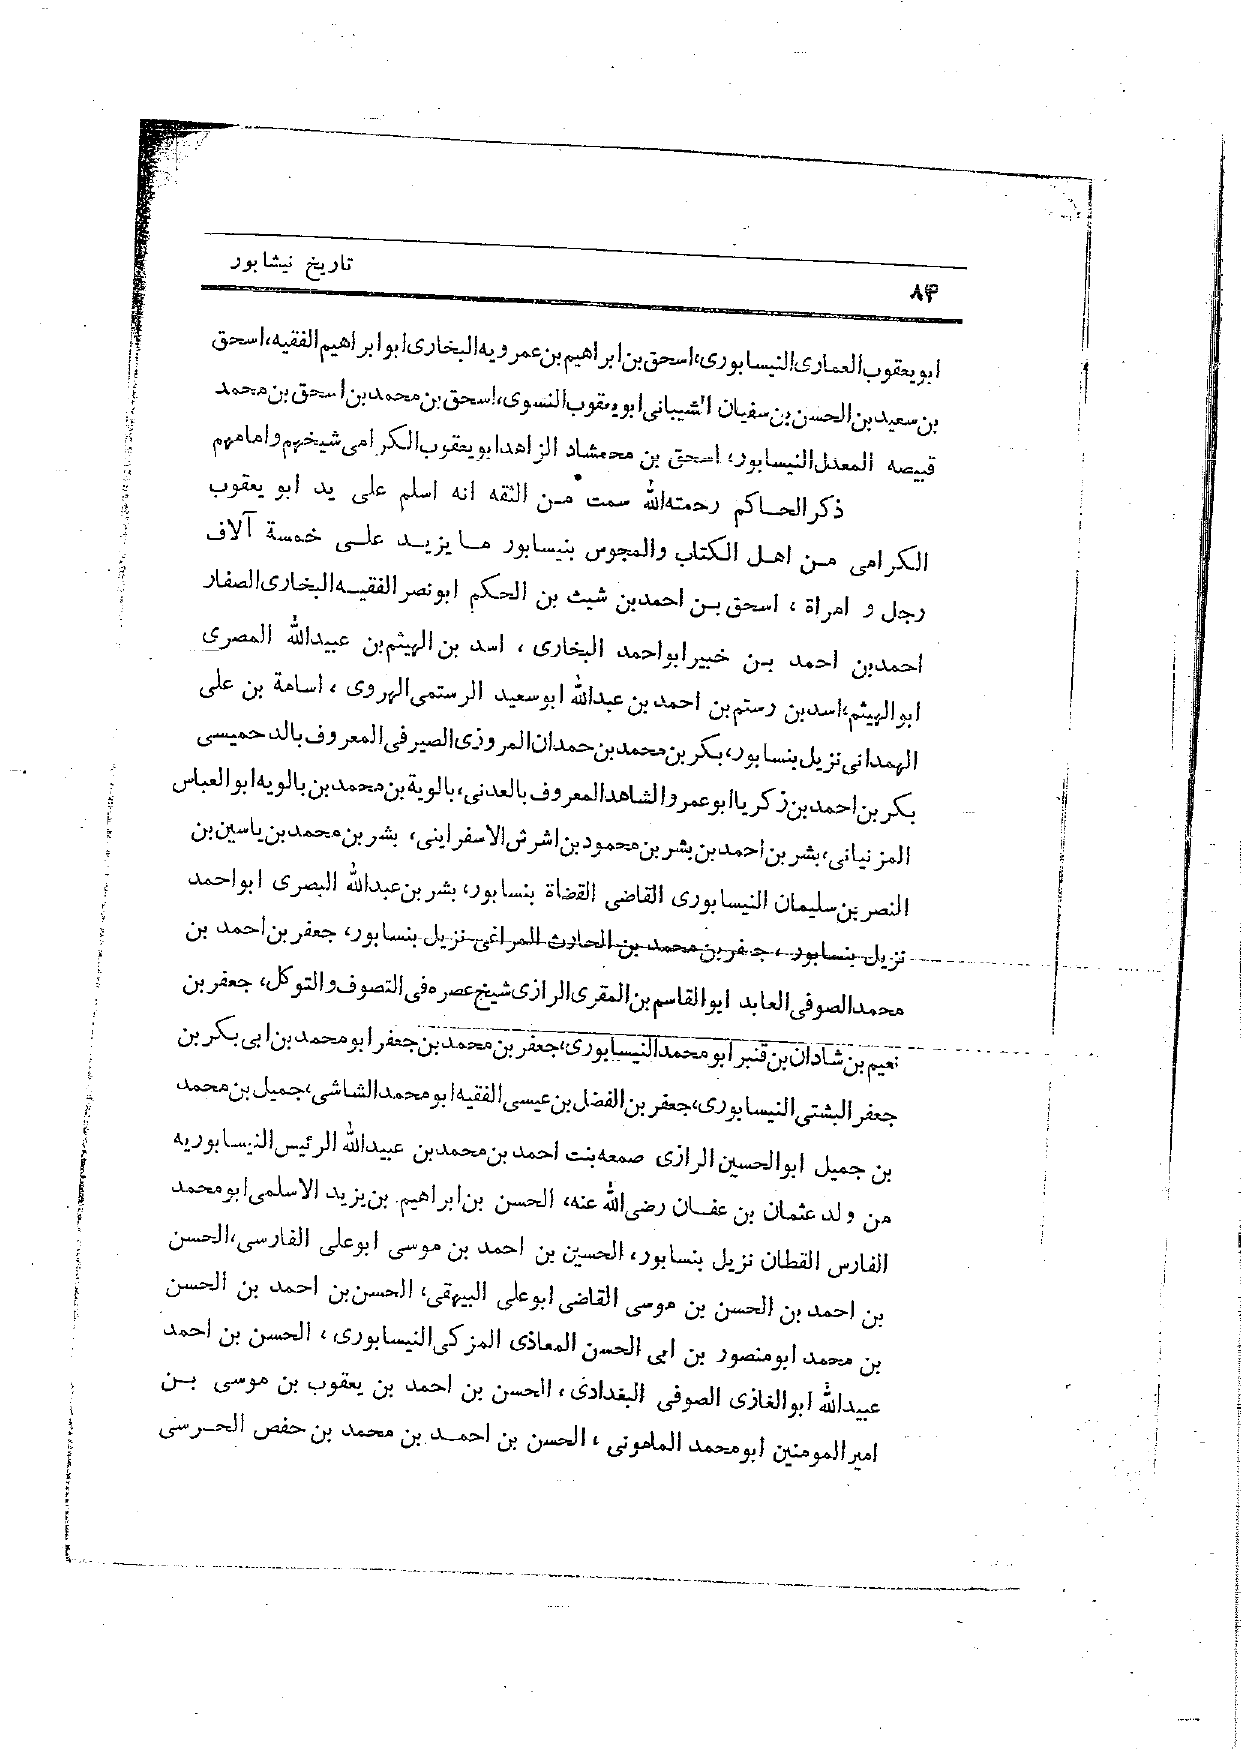 تاریخ نیشابور
۸۴
ابویعقوب العماری النیسابوری، اسحق بن ابراهیم بن عمرویه البخاری ابو ابراهیم الفقیه، اسحق
بن سعید بن الحسن بن سفیان الشیبانی ابویعقوب النسوی، اسحق بن محمد بن اسحق بن محمد
قبیصه المعدل النیسابور، اسحق بن محمشاد الزاهد ابویعقوب الکرامی شیخهم و امامهم
ذکر الحاکم رحمته الله سمت من الثقه انه اسلم علی ید ابو یعقوب
الکرامی من اهل الکتاب والمجوس بنیسابور ما یزید علی خمسة آلاف
رجل و امراة ، اسحق بن احمد بن شیث بن الحکم ابونصر الفقیه البخاری الصفار
احمد بن احمد بن خبیر ابواحمد البخاری ، اسد بن الهیثم بن عبیدالله المصری
ابوالهیثم، اسد بن رستم بن احمد بن عبدالله ابوسعید الرستمی الهروی ، اسامة بن علی
الهمدانی نزیل بنسابور، بکر بن محمد بن حمدان المروزی الصیرفی المعروف بالدحمیسی
بکر بن احمد بن زکریا ابوعمرو الشاهد المعروف بالعدنی، بالویة بن محمد بن بالویه ابوالعباس
المزنیانی، بشر بن احمد بن بشر بن محمود بن اشرش الاسفراینی، بشر بن محمد بن یاسین بن
النصر بن سلیمان النیسابوری القاضی القضاة بنسابور، بشر بن عبدالله البصری ابواحمد
نزیل بنسابور ، جعفر بن محمد بن الحارث المراغی نزیل بنسابور، جعفر بن احمد بن
محمد الصوفی العابد ابوالقاسم بن المقری الرازی شیخ عصره فی التصوف والتوکل، جعفر بن
نعیم بن شادان بن قنبر ابومحمد النیسابوری، جعفر بن محمد بن جعفر ابومحمد بن ابی بکر بن
جعفر البشتی النیسابوری، جعفر بن الفضل بن عیسی الفقیه ابومحمد الشاشی، جمیل بن محمد
بن جمیل ابوالحسین الرازی صمعه بنت احمد بن محمد بن عبیدالله الرئیس النیسابوریه
من ولد عثمان بن عفان رضی الله عنه، الحسن بن ابراهیم بن یزید الاسلمی ابومحمد
الفارس القطان نزیل بنسابور، الحسین بن احمد بن موسی ابوعلی الفارسی، الحسن
بن احمد بن الحسن بن موسی القاضی ابوعلی البیهقی، الحسن بن احمد بن الحسن
بن محمد ابومنصور بن ابی الحسن المعاذی المزکی النیسابوری ، الحسن بن احمد
عبیدالله ابوالغازی الصوفی البغدادی ، الحسن بن احمد بن یعقوب بن موسی بن
امیر المومنین ابومحمد المامونی ، الحسن بن احمد بن محمد بن حفص الحرسی